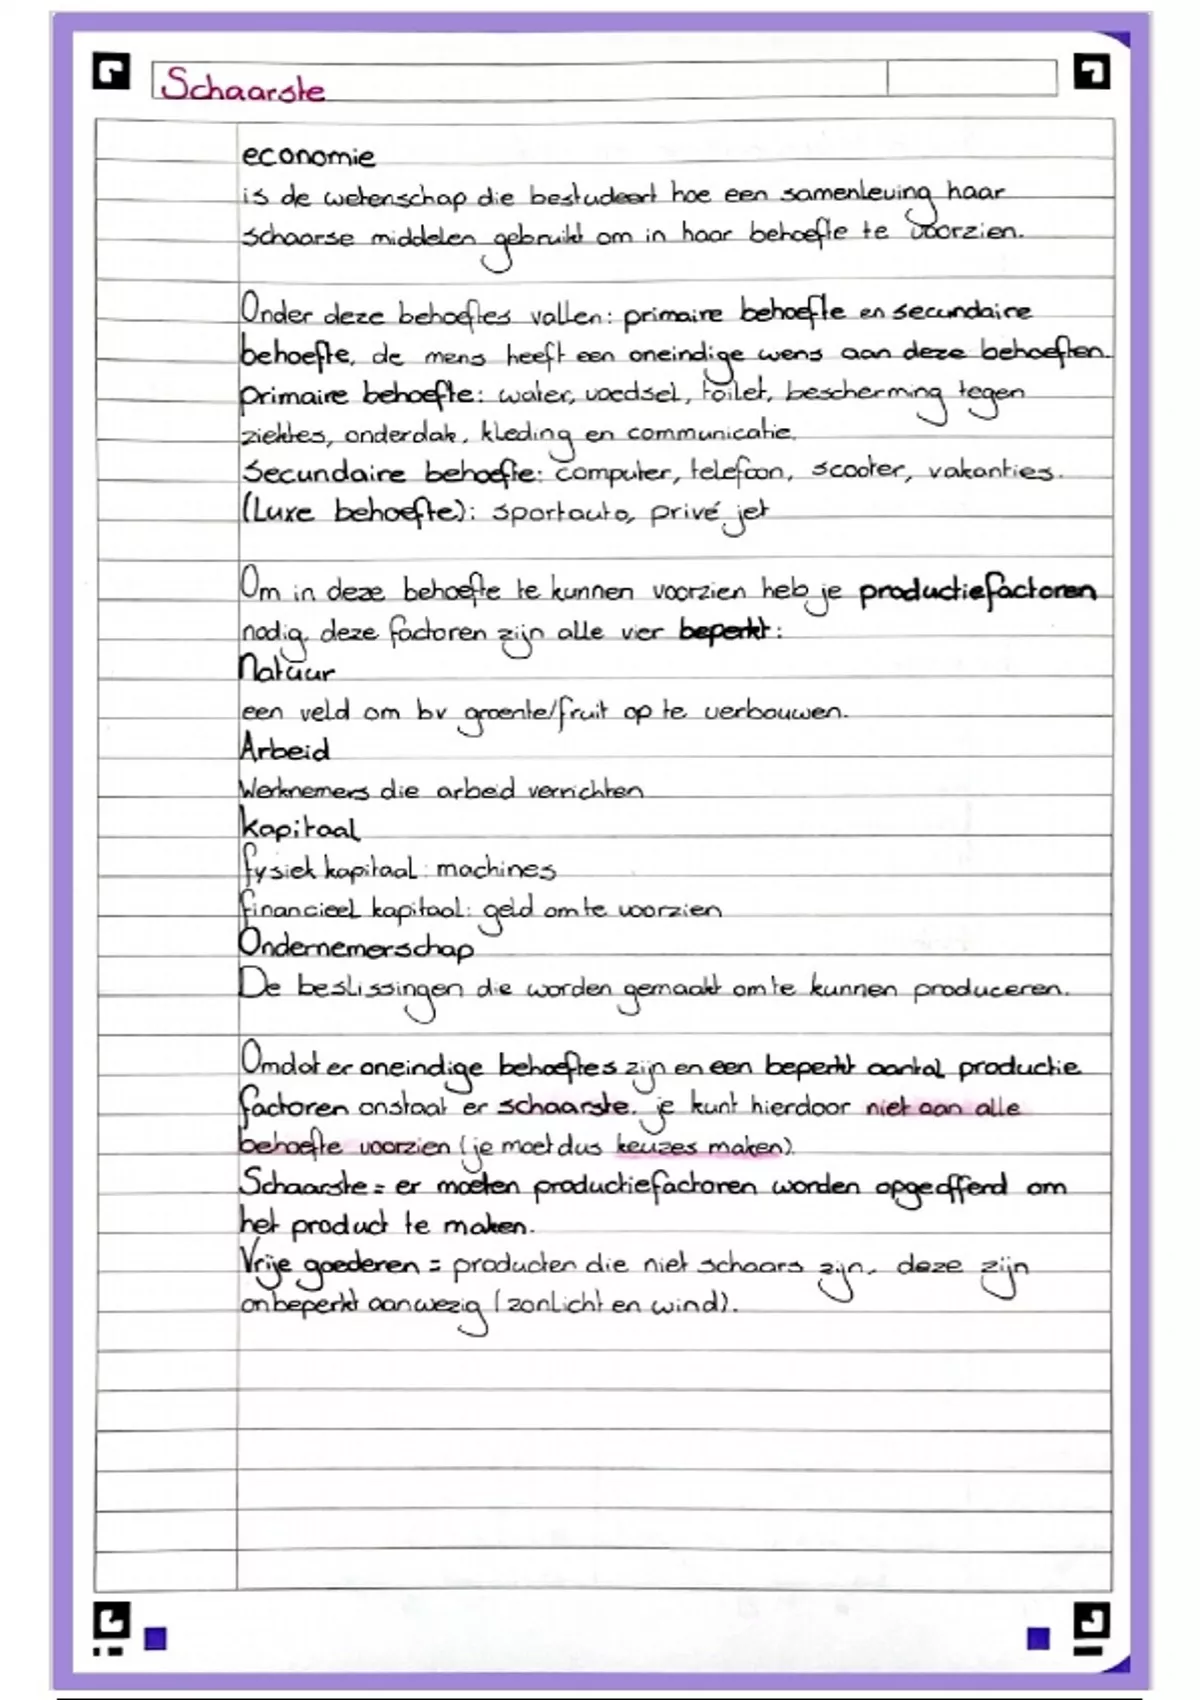 Schaarste
economie
is de wetenschap die bestudeert hoe een samenleving haar
schaarse middelen gebruikt om in haar behoefte te voorzien.
Onder deze behoeftes vallen: primaire behoefte en secundaire
behoefte, de mens heeft een oneindige wens aan deze behoeften.
primaire behoefte: water, voedsel, toilet, bescherming tegen
ziektes, onderdak, kleding en communicatie.
Secundaire behoefte: computer, telefoon, scooter, vakanties.
(Luxe behoefte): sportauto, privé jet
Om in deze behoefte te kunnen voorzien heb je productiefactoren
nodig, deze factoren zijn alle vier beperkt:
Natuur
een veld om bv groente/fruit op te verbouwen.
Arbeid
Werknemers die arbeid verrichten
kapitaal
fysiek kapitaal: machines
financieel kapitaal: geld om te voorzien
Ondernemerschap
De beslissingen die worden gemaakt om te kunnen produceren.
Omdat er oneindige behoeftes zijn en een beperkt aantal productie
factoren onstaat er schaarste. je kunt hierdoor niet aan alle
behoefte voorzien (je moet dus keuzes maken).
Schaarste = er moeten productiefactoren worden opgeofferd om
het product te maken.
Vrije goederen = producten die niet schaars zijn, deze zijn
onbeperkt aanwezig (zonlicht en wind).